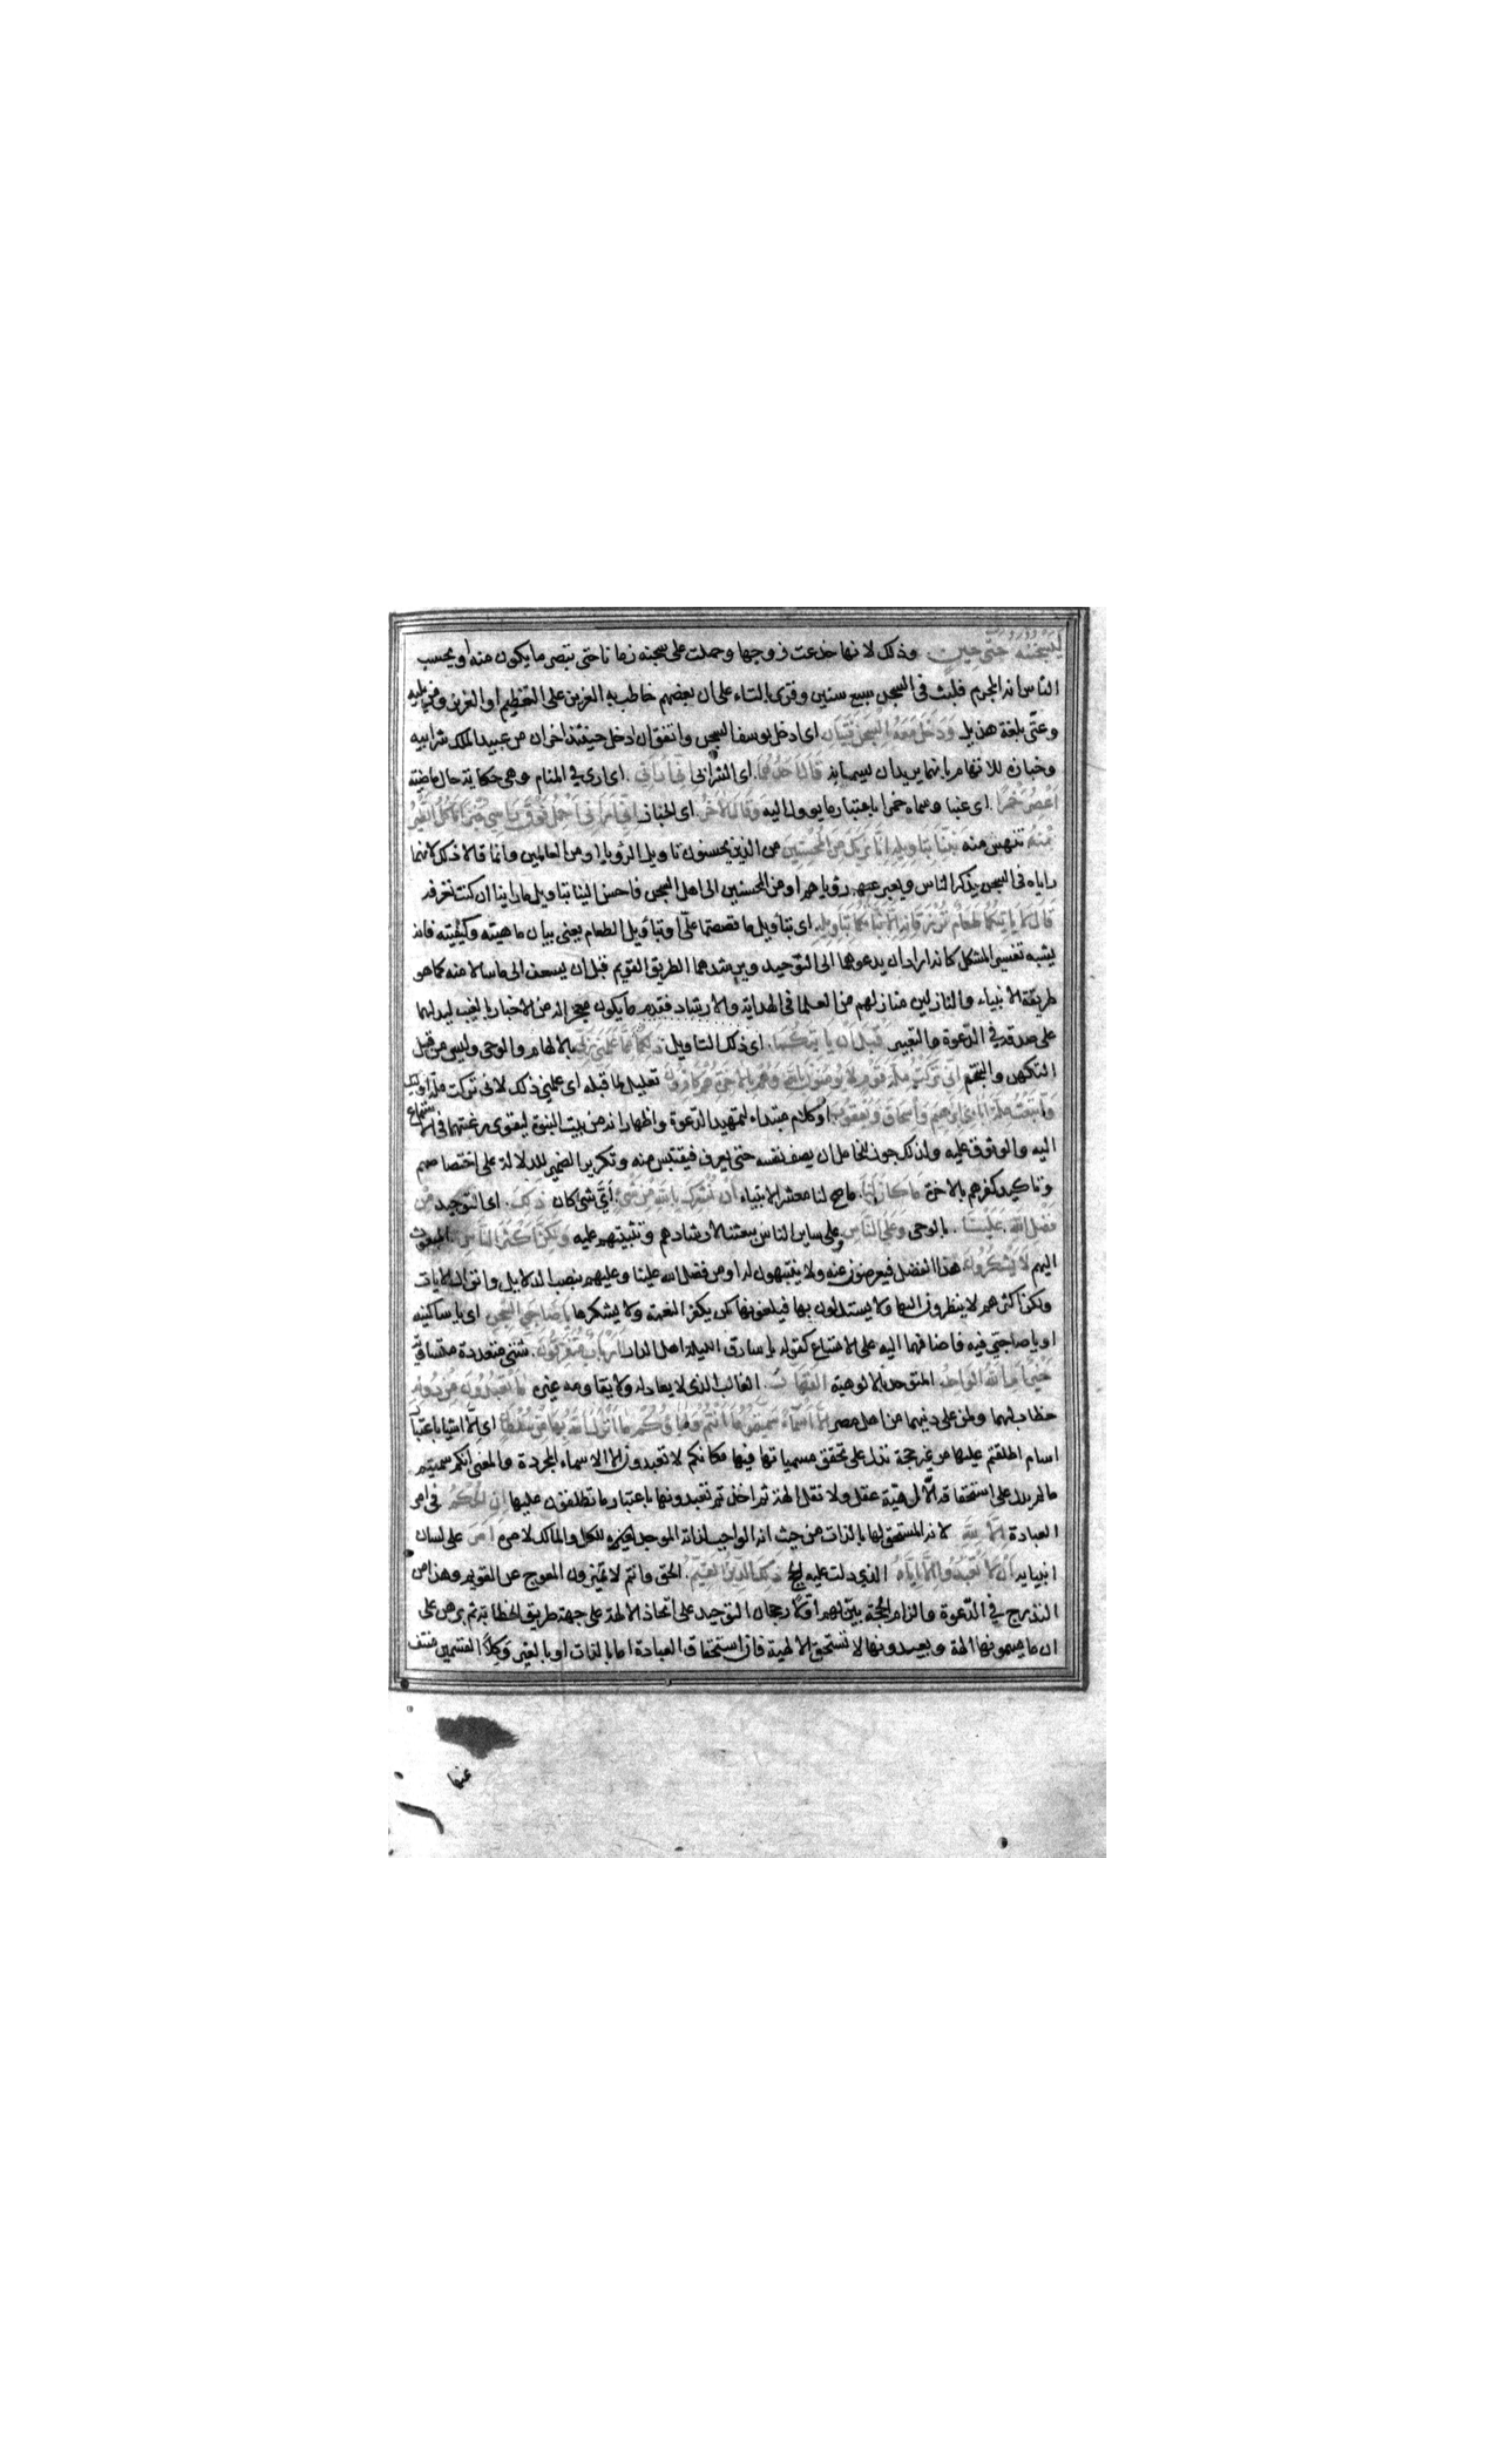 ليسجننه حتى حين وذلك لانها خدعت زوجها وحملت على سجنه زمانا حتى تبصر ما يكون منه او يحسب
الناس انه المجرم فلبث فى السجن سبع سنين وقرئ بالتاء على ان بعضهم خاطب به العزيز على التعظيم او العزيز ومن يليه
وعتى بلغة هذيل ودخل معه السجن فتيان اى ادخل يوسف السجن واتفق ان ادخل حينئذ اخران من عبيد الملك شرابيه
وخبازه للاتهام بانهما يريدان ان يسماه قال احدهما اى الشرابى انى ارانى اى ارى فى المنام وهى حكاية حال ماضية
اعصر خمرا اى عنبا وسماه خمرا باعتبار ما يوول اليه وقال الاخر اى الخباز انى ارانى احمل فوق راسى خبزا تاكل الطير
منه تنهش منه نبئنا بتاويله انا نريك من المحسنين من الذين يحسنون تاويل الرؤيا او من العالمين وانما قالا ذلك لانهما
راياه فى السجن يذكر الناس ويعبر رؤياهم او من المحسنين الى اهل السجن فاحسن الينا بتاويل ما راينا ان كنت تعرفه
قال لا ياتيكما طعام ترزقانه الا نباتكما بتاويله اى بتاويل ما قصصتما على او بتاويل الطعام يعنى بيان ماهيته وكيفيته فانه
يشبه تفسير المشكل كانه اراد ان يدعوهما الى التوحيد ويرشدهما الطريق القويم قبل ان يسعف الى ما سالا منه كما هو
طريقة الانبياء والنازلين منازلهم من العلما فى الهداية والارشاد فقدم ما يكون معجزا له من الاخبار بالغيب ليدلهما
على صدقه فى الدعوة والتعبير قبل ان ياتيكما اى ذلك التاويل ذلكما مما علمنى ربى بالالهام والوحى وليس من قبيل
التكهن والتنجم انى تركت ملة قوم لا يومنون بالله وهم بالاخرة هم كافرون تعليل لما قبله اى علمنى ذلك لانى تركت ملة اولئك
واتبعت ملة اباءى ابرهيم واسحاق ويعقوب او كلام مبتداء لتمهيد الدعوة واظهار انه من بيت النبوة ليقوى رغبتهما فى الاستماع
اليه والوثوق عليه ولذلك جوز للخامل ان يصف نفسه حتى يعرف فيقتبس منه وتكرير الضمير للدلالة على اختصاصهم
وتاكيد كفرهم بالاخرة ما كان لنا ما صح لنا معشر الانبياء ان نشرك بالله من شئ اى شئ كان ذلك اى التوحيد من
فضل الله علينا بالوحى وعلى الناس وعلى ساير الناس ببعثنا لارشادهم وتثبيتهم عليه ولكن اكثر الناس المبعوث
اليهم لا يشكرون هذا الفضل فيعرضون عنه ولا ينتبهون له او من فضل الله علينا وعليهم بنصب الدلايل وانزال الايات
ولكن اكثرهم لا ينظرون اليها ولا يستدلون بها فيلغونها كمن يكفر النعمة ولا يشكرها يا صاحبى السجن اى يا ساكنيه
او يا صاحبى فيه فاضافهما اليه على الاتساع كقوله يا سارق الليلة اهل الدار ارباب متفرقون شتى متعددة متساوية
خير ام الله الواحد المتوحد بالالوهية القهار الغالب الذى لا يعادله ولا يقاومه غيره ما تعبدون من دونه
خطاب لهما ولمن على دينهما من اهل مصر الا اسماء سميتموها انتم واباؤكم ما انزل الله بها من سلطان اى الا اشيا باعتبار
اسام اطلقتم عليها من غير حجة تدل على تحقق مسمياتها فيها فكانكم لا تعبدون الا الاسماء المجردة والمعنى انكم سميتم
ما لم يدل على استحقاقه الالهية عقل ولا نقل الهة ثم اخذتم تعبدونها باعتبار ما تطلقون عليها ان الحكم فى امر
العبادة الا لله لانه المستحق لها بالذات من حيث انه الواجب لذاته الموجد لغيره للكل والمالك لامره امر على لسان
انبيايه ان لا تعبدوا الا اياه الذى دلت عليه الحج ذلك الدين القيم الحق وانتم لا تميزون المعوج عن القويم وهذا من
التدرج فى الدعوة والزام الحجة بين لهم اولا رجحان التوحيد على اتخاذ الالهة على جهة طريق الخطابة ثم برهن على
ان ما يسمونها الهة ويعبدونها لا تستحق الالهية فان استحقاق العبادة اما بالذات او بالغير وكلا القسمين منتف
عنها